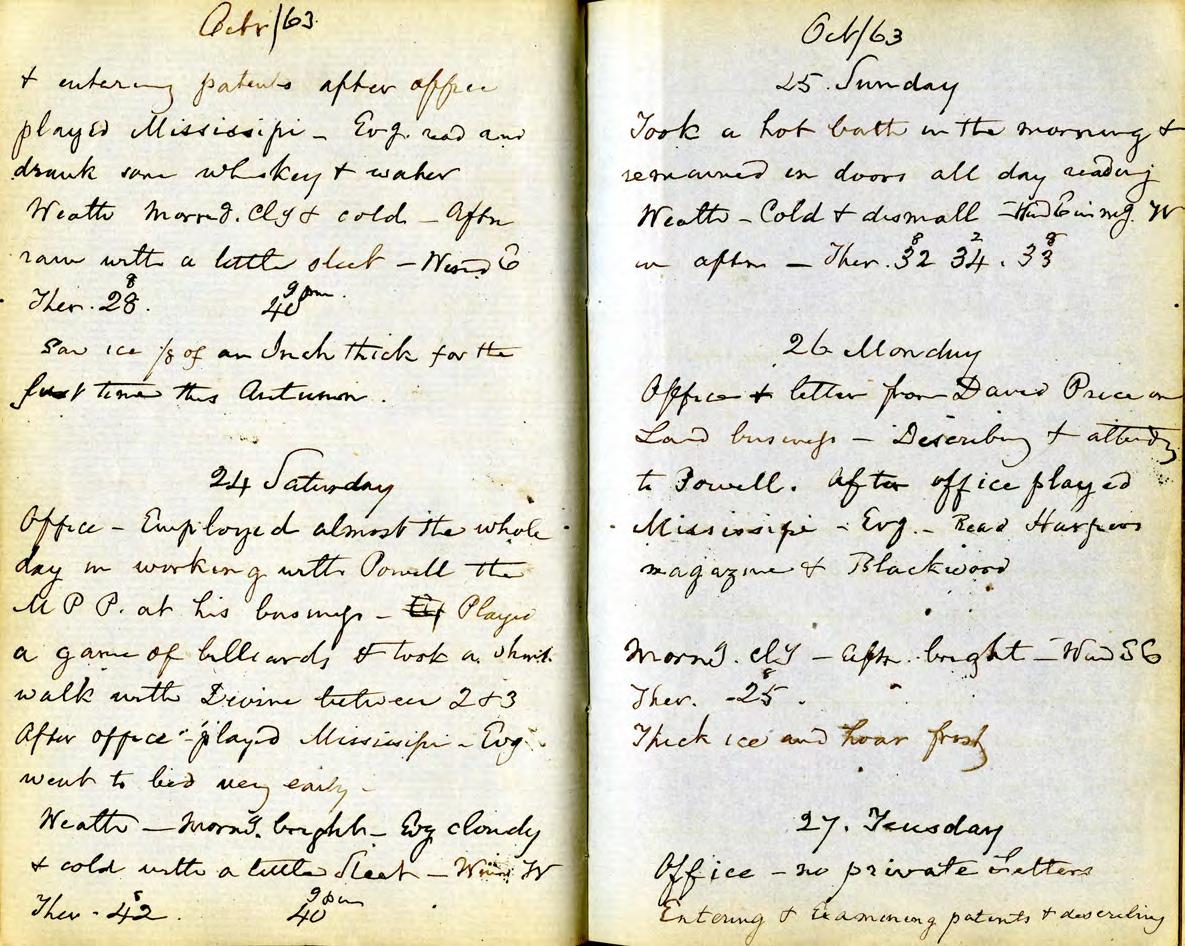 Octr/63
& entering patents after office
played Mississipi - Evg. read and
drank some whiskey & water
Weathr Morng. cly & cold - Aftn
rain with a little sleet - Wind E
8 9 pm.
Ther. 28. 40
Saw ice 1/8 of an Inch thick for the
first time this Autumn.
24 Saturday
Office - Employed almost the whole
day in working with Powell the
M P P. at his business - Played
a game of billiards & took a short
walk with Devine between 2 & 3
After office played Mississipi - Evg.
went to bed very early -
Weathr - Morng. bright - Evg cloudy
& cold with a little Sleet - Wind W
8 9 pm
Ther - 42. 40
Oct/63
25. Sunday
Took a hot bath in the morning &
remained in doors all day reading
Weathr - Cold & dismall - Wind E in mg. W
8 2 8
in aftn - Ther. 32 34. 33
26 Monday
Office & letter from David Price on
Land business - Describing & attendg
to Powell. After office played
Mississipi - Evg. - Read Harpers
magazine & Blackwood
Morng. cly - Aftn. bright - Wind SE
8
Ther. - 25.
Thick ice and hoar frost
27. Teusday
Office - no private Letters
Entering & Examining patents & describing